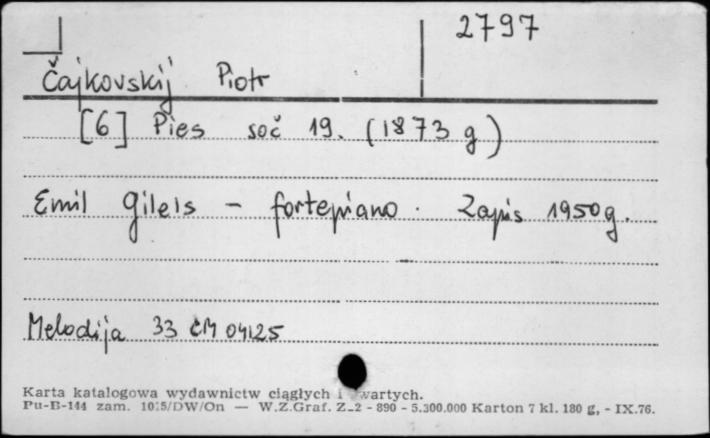 2797
Čajkovskij Piotr
[6] Pies soč 19. (1873 g)
Emil Gilels - fortepiano. Zapis 1950 g.
Melodija 33 CM 04125
Karta katalogowa wydawnictw ciągłych i zwartych.
Pu-B-144 zam. 1015/DW/On — W.Z.Graf. Z-2 - 890 - 5.300.000 Karton 7 kl. 180 g, - IX.76.